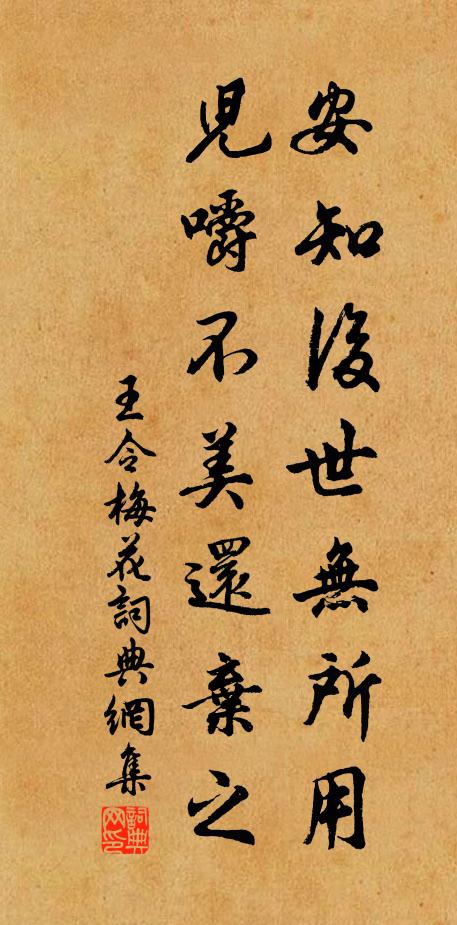 安知後世無所用
兒嚼不美還棄之
王令梅花詞典網集
詞典网印